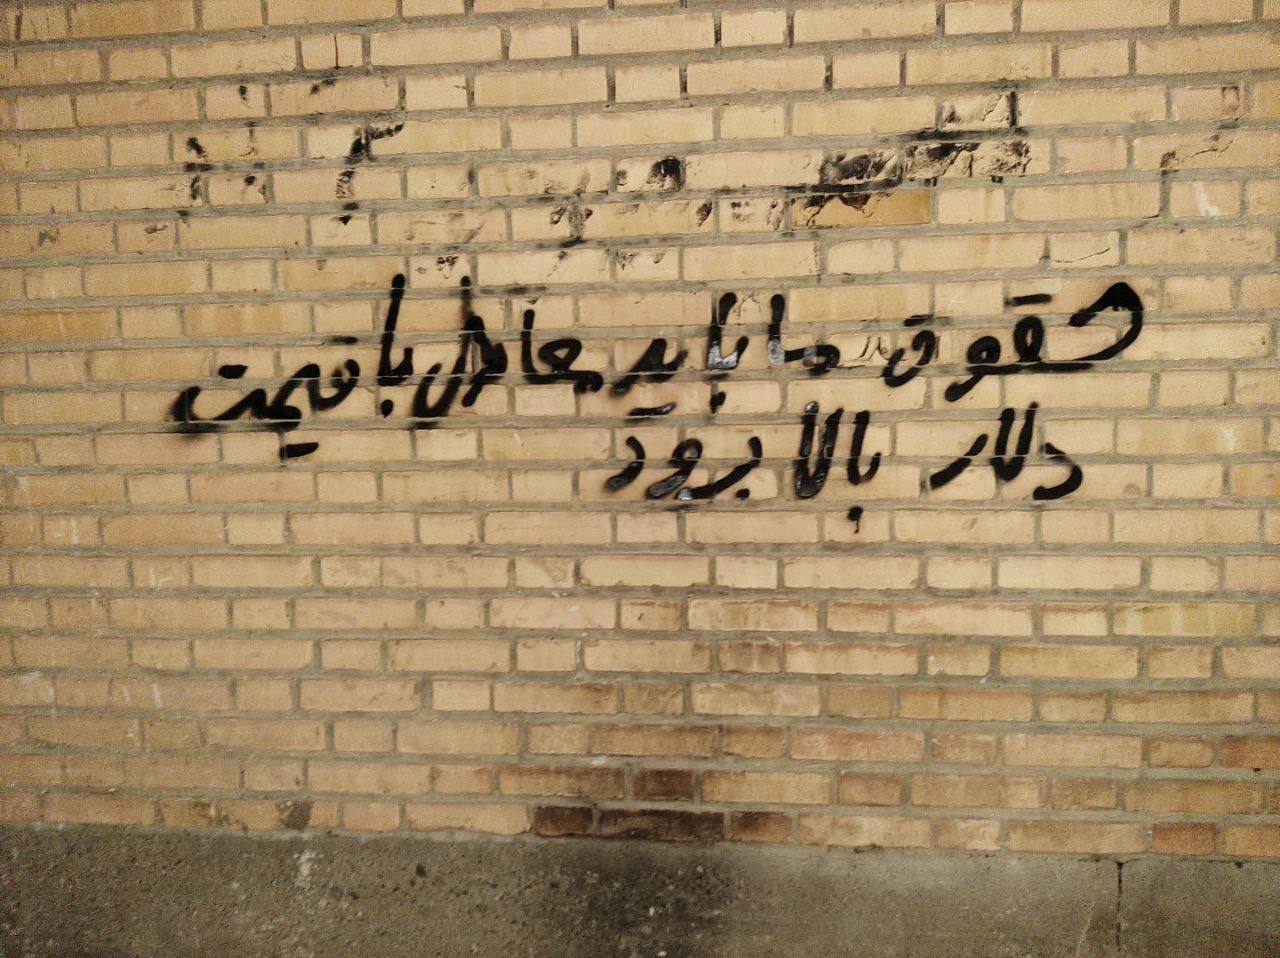 حقوق ما باید معادل با قیمت
دلار بالا برود